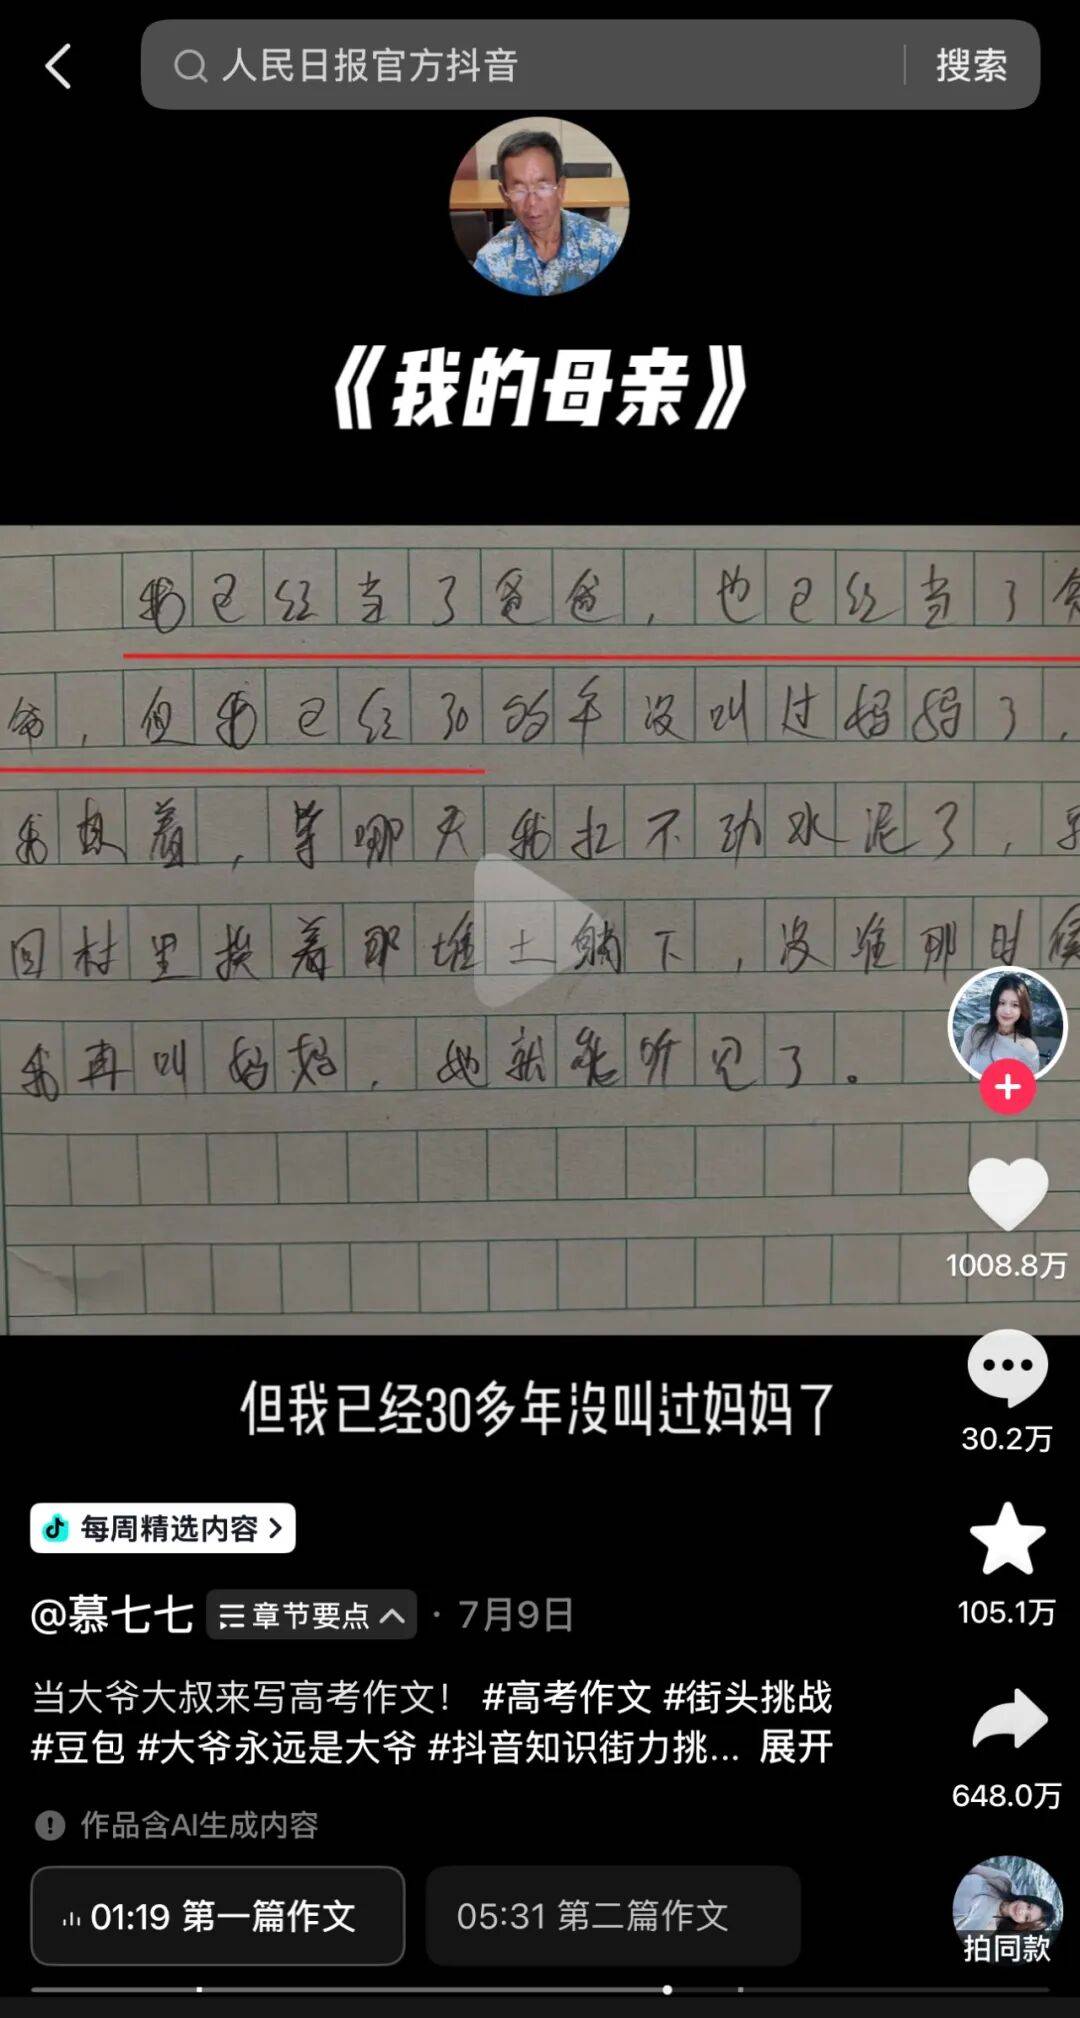 人民日报官方抖音
搜索
《我的母亲》
我已经当了爸爸，也已经当了爷
爷，但我已经30多年没叫过妈妈了，
我想着，等哪天我扛不动水泥了，
回村里挨着那堆土躺下，没准那时候
我再叫妈妈，她就能听见了。
1008.8万
但我已经30多年没叫过妈妈了
30.2万
每周精选内容
@慕七七 章节要点 · 7月9日
105.1万
当大爷大叔来写高考作文！ #高考作文 #街头挑战
#豆包 #大爷永远是大爷 #抖音知识街力挑... 展开
648.0万
作品含AI生成内容
01:19 第一篇作文
05:31 第二篇作文
拍同款